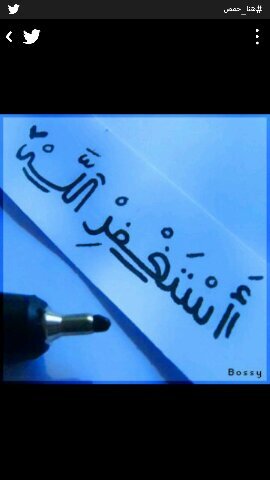 #هنا_حمص
أَسْتَغْفِرُ اللَّهَ
Bossy